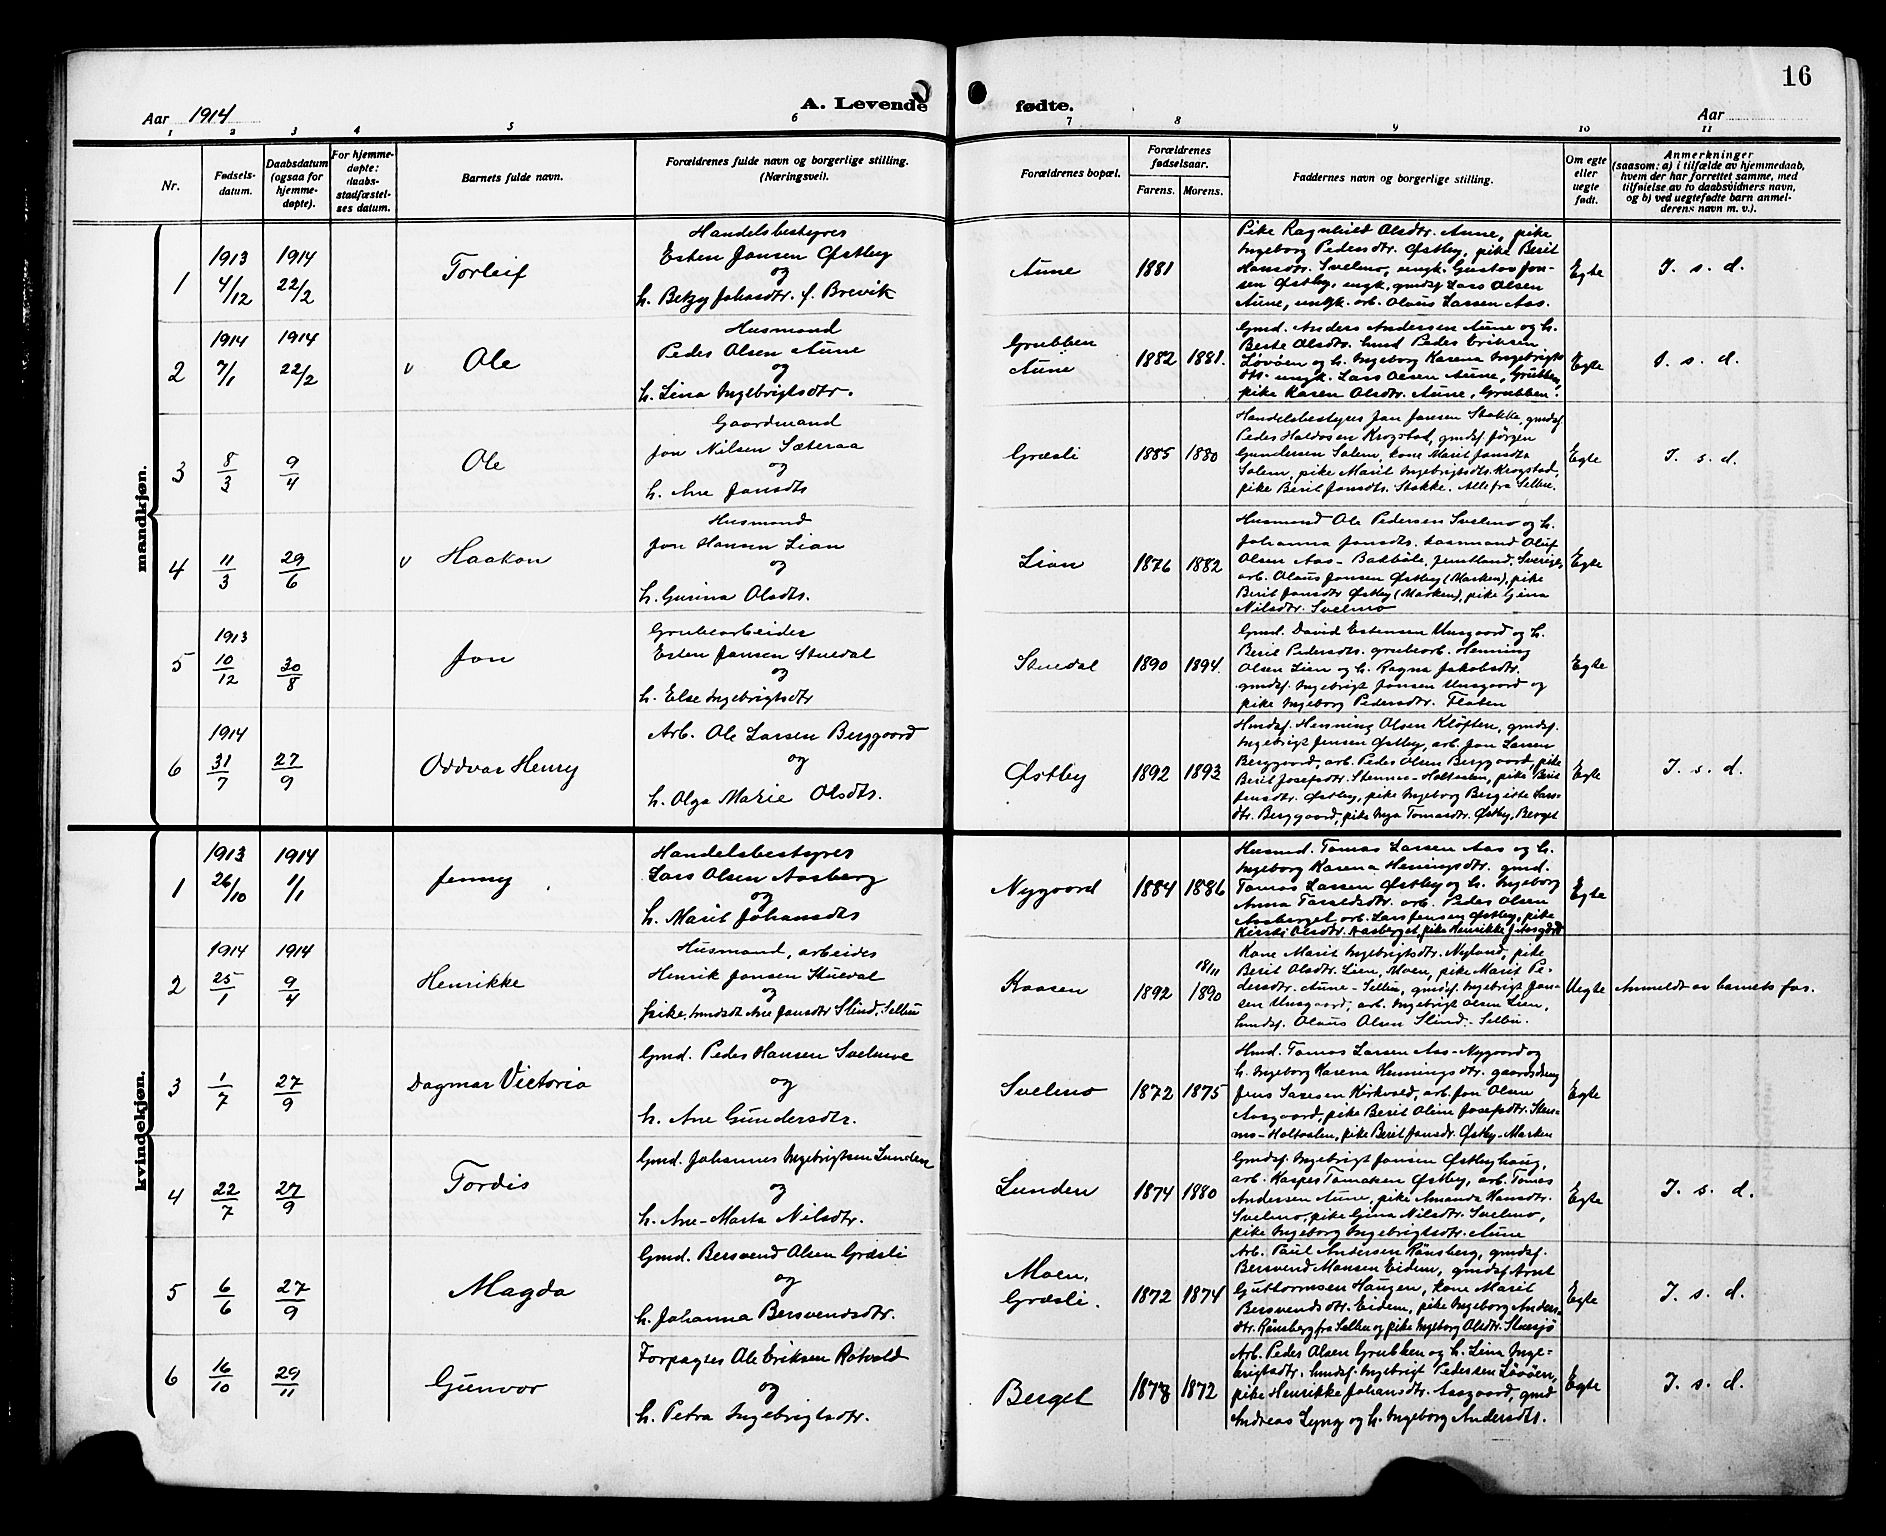 16
Aar 1914
A. Levende fødte.
Aar
1 2 3 4 5 6 7 8 9 10 11
Nr.
Fødsels-
datum.
Daabsdatum
(ogsaa for
hjemme-
døpte).
For hjemme-
døpte:
daabs-
stadfæstel-
ses datum.
Barnets fulde navn.
Forældrenes fulde navn og borgerlige stilling.
(Næringsvei).
Forældrenes bopæl.
Forældrenes
fødselsaar.
Farens. Morens.
Faddernes navn og borgerlige stilling.
Om egte
eller
uegte
født.
Anmerkninger
(saasom: a) i tilfælde av hjemmedaab,
hvem der har forrettet samme, med
tilføielse av to daabsvidners navn,
og b) ved uegtefødte barn anmel-
derens navn m. v.).
mandkjøn.
1
1913
4/12
1914
22/2
Torleif
Handelsbestyrer
Esten Jonsen Østby
og
h. Betzy Johansdtr. f. Brevik
Aune
1881
Pike Ragnhild Olsdtr. Aune, pike
Ingeborg Pedersdtr. Østby, pike Berit
Hansdtr. Svelmo, ungk. Gustav Jon-
sen Østby, ungk. gmdsf. Lars Olsen
Aune, ungk. arb. Olaus Larsen Aas.
Egte
I. s. d.
2
1914
7/1
1914
22/2
v Ole
Husmand
Peder Olsen Aune
og
h. Lina Ingebrigtsdtr.
Grubben
Aune
1882 1881.
Gmd. Anders Andersen Aune og h.
Berte Olsdtr. hmd Peder Eriksen
Løvøen og h. Ingeborg Karena Ingebrigts
dtr. ungk. Lars Olsen Aune, Grubben,
pike Karen Olsdtr. Aune, Grubben.
Egte
I. s. d.
3
8/3
9/4
Ole
Gaardmand
Jon Nilsen Sæteraa
og
h. Ane Jonsdtr
Græsli
1885 1880
Handelsbestyrer Jon Jonsen Stokke, gmdsf.
Peder Haldosen Krogstad, gmdsf. Jørgen
Gundersen Salem, kone Marit Jonsdtr
Salem, pike Marit Ingebrigtsdtr. Krogstad,
pike Berit Jonsdtr. Stokke. Alle fra Selbu.
Egte
I. s. d.
4
11/3
29/6
v Haakon
Husmand
Jon Hansen Lian
og
h. Gurina Olsdtr.
Lian
1876 1882
Husmand Ole Pedersen Svelmo og h.
Johanna Jonsdtr. Olof
Olsen Aas - Bakbøle, Jemtland, Sverige,
arb. Olaus Jonsen Østby (Marken), pike
Berit Jonsdtr Østby (Marken), pike Gina
Nilsdtr. Svelmo
Egte
5
1913
10/12
30/8
Jon
Grubearbeider
Esten Jonsen Stuedal
og
h. Else Ingebrigtsdtr
Stuedal
1890 1894.
Gmd. David Estensen Unsgaard og h.
Beril Pedersdtr. grubearb. Henning
Olsen Lien og h. Ragna Jakobsdtr.
gmdsf. Ingebrigt Jonsen Unsgaard og
pike Ingeborg Pedersdtr. Flaten
Egte
6
1914
31/7
27/9
Oddvar Henry
Arb. Ole Larsen Berggaard
og
h. Olga Marie Olsdtr.
Østby
1892 1893
Hmdsf. Henning Olsen Kløften, gmdsf.
Ingebrigt Jensen Østby, arb. Jon Larsen
Berggaard, arb. Peder Olsen Berggaard, pike
Berit Josefsdtr. Stenmo-Holtaalen, pike Berit
Jensdtr. Østby, pike Ingeborg Bergitte Lars-
dtr. Berggaard, pike Inga Tomasdtr. Østby, Berget
Egte
I. s. d.
kvindekjøn.
1
1913
26/10
1914
1/1
Jenny
Handelsbestyrer
Lars Olsen Aasberg
og
h. Marit Johansdtr
Nygaard
1884 1886
Husmd. Tomas Larsen Aas og h.
Ingeborg Karena Henningsdtr. gmd.
Tomas Larsen Østby og h. Ingeborg
Anna Tareldsdtr. arb. Peder Olsen
Aasberget, arb. Lars Jensen Østby, pike
Kirsti Olsdtr. Aasberget, pike Henrikke J. Aasgård
Egte
2
1914
25/1
1914
9/4
Henrikke
Husmand, arbeider
Henrik Jonsen Stuedal
og
pike, hmdsdt Ane Jonsdtr Slind, Selbu
Kaasen
1892
18/11
1890
Kone Marit Ingebrigtsdtr. Nyland, pike
Berit Olsdtr. Lien, Moen, pike Marit Pe-
dersdtr. Aune-Selbu, gmdsf. Ingebrigt Jon-
sen Unsgaard, arb. Ingebrigt Olsen Lien,
hmdsf. Olaus Olsen Slind-Selbu.
Uegte
Anmeldt av barnets far.
3
1/7
27/9
Dagmar Victoria
Gmd. Peder Hansen Svelmoe
og
h. Ane Gundersdtr.
Svelmo
1872 1875
Hmd. Tomas Larsen Aas-Nygaard og
h. Ingeborg Karena Henningsdtr. gaardsdreng
Jens Larsen Kirkvold, arb. Jon Olsen
Aasgaard, pike Berit Oline Josefsdtr. Sten-
mo-Holtaalen, pike Berit Jonsdr. Østby-Marken
Egte
4
22/7
27/9
Tordis
Gmd. Johannes Ingebrigtsen Lunden
og
h. Ane-Marta Nilsdtr.
Lunden
1874 1880
Gmdsf. Ingebrigt Jonsen Østbyhaug,
arb. Kasper Tomasen Østby, arb. Tomas
Andersen Aune, pike Amanda Hansdtr.
Svelmo, pike Gina Nilsdtr. Svelmo,
pike Ingeborg Ingebrigtsdtr. Aune
Egte
I. s. d.
5
6/6
27/9
Magda
Gmd. Bersvend Olsen Græsli
og
h. Johanna Bersvendsdtr.
Moen,
Græsli.
1872 1874
Arb. Paul Andersen Rønsberg, gmdsf.
Bersvend Monsen Eidem, gmdsf. Arnt
Guttormsen Haugen, kone Marit
Bersvendsdtr. Eidem, pike Ingeborg Anders-
dtr. Rønsberg fra Selbu og pike Ingeborg Olsdtr. Storsjö
Egte
I. s. d.
6
16/10
29/11
Gunvor
Forpagter Ole Eriksen Rotvold
og
h. Petra Ingebrigtsdtr.
Berget
1878 1872
Arb. Peder Olsen Grubben og h. Lina Inge-
brigtsdtr. hmdsf. Ingebrigt Pedersen Løvøen,
pike Henrikke Johansdtr. Aasgaard, gmd
Andreas Lyng og h. Ingeborg Andersdtr.
Egte
I. s. d.